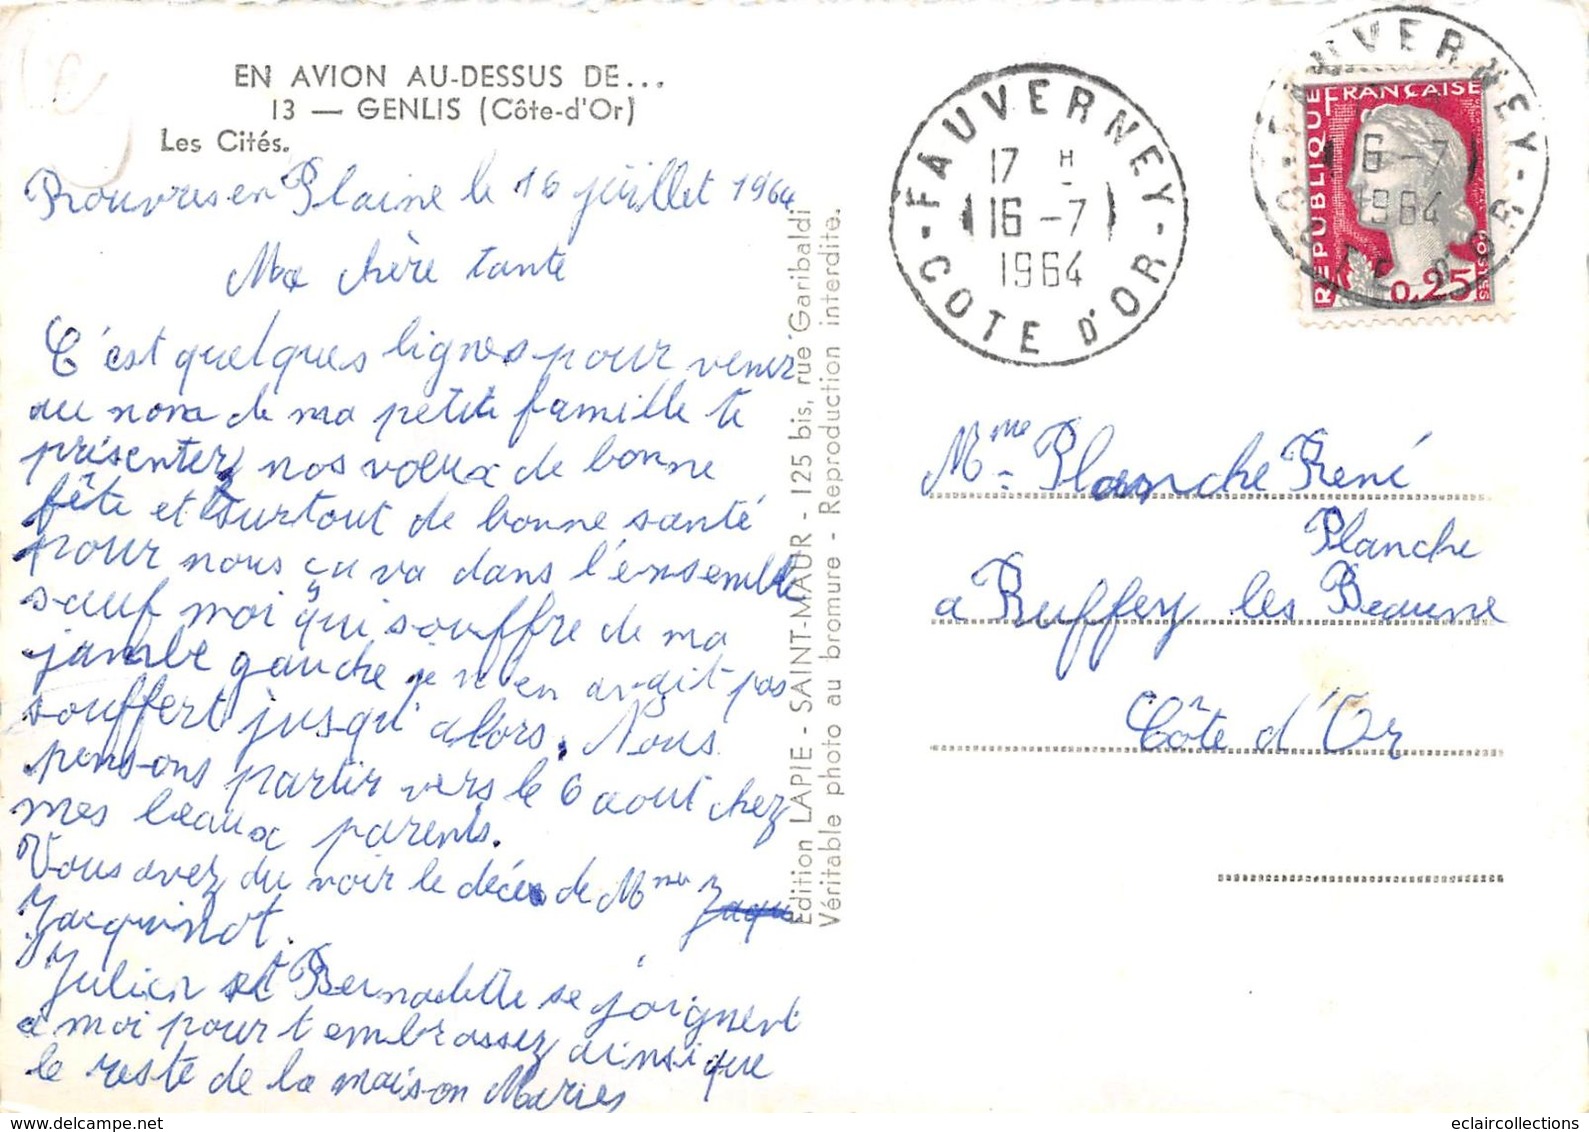 EN AVION AU-DESSUS DE...
13 — GENLIS (Côte-d'Or)
Les Cités.
Rouvres en Plaine le 16 juillet 1964
Ma chère tante
C'est quelques lignes pour venir
au nom de ma petite famille te
présenter nos voeux de bonne
fête et surtout de bonne santé
pour nous ça va dans l'ensemble
sauf moi qui souffre de ma
jambe gauche je n'en avait pas
souffert jusqu'alors. Nous
pensons partir vers le 6 aout chez
mes beaux parents.
Vous avez du voir le décès de Mme Jaqu
Jacquinot.
Julien et Bernadette se joignent
à moi pour t'embrassez ainsi que
le reste de la maison Maries
Edition LAPIE - SAINT-MAUR - 125 bis, rue Garibaldi
Véritable photo au bromure - Reproduction interdite.
FAUVERNEY
17 H
16 -7
1964
COTE D'OR
FAUVERNEY
16 -7
1964
COTE D'OR
REPUBLIQUE FRANÇAISE
POSTES
0,25
Mme Planche René
Planche
a Ruffey les Beaune
Côte d'Or
eclaircollections
www.delcampe.net